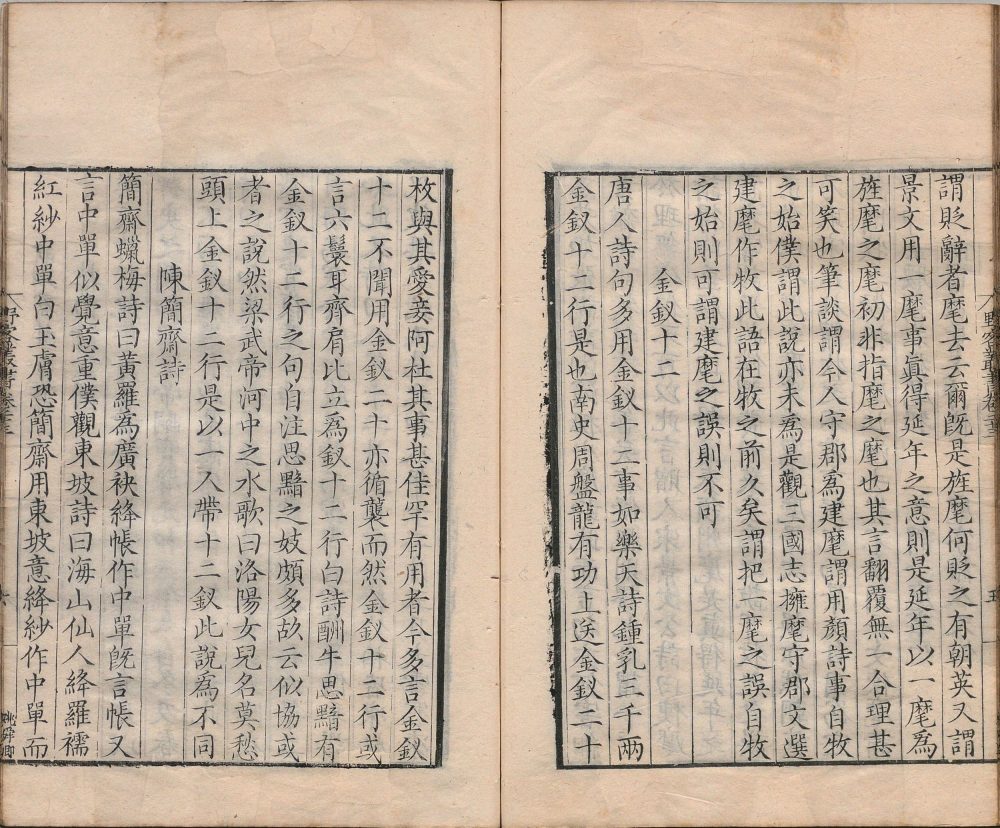 謂貶辭者麾去云爾旣是旌麾何貶之有朝英又謂
景文用一麾事眞得延年之意則是延年以一麾爲
旌麾之麾初非指麾之麾也其言翻覆無一合理甚
可笑也筆談謂今人守郡爲建麾謂用顔詩事自牧
之始僕謂此說亦未爲是觀三國志擁麾守郡文選
建麾作牧此語在牧之前久矣謂把一麾之誤自牧
之始則可謂建麾之誤則不可
金釵十二
唐人詩句多用金釵十二事如樂天詩鍾乳三千兩
金釵十二行是也南史周盤龍有功上送金釵二十
枚與其愛妾阿杜其事甚佳罕有用者今多言金釵
十二不聞用金釵二十亦循襲而然金釵十二行或
言六鬟耳齊肩比立爲釵十二行白詩酬牛思黯有
金釵十二行之句自注思黯之妓頗多故云似協或
者之說然梁武帝河中之水歌曰洛陽女兒名莫愁
頭上金釵十二行是以一人帶十二釵此說爲不同
陳簡齋詩
簡齋蠟梅詩曰黃羅爲廣袂絳帳作中單旣言帳又
言中單似覺意重僕觀東坡詩曰海山仙人絳羅襦
紅紗中單白玉膚恐簡齋用東坡意絳紗作中單而